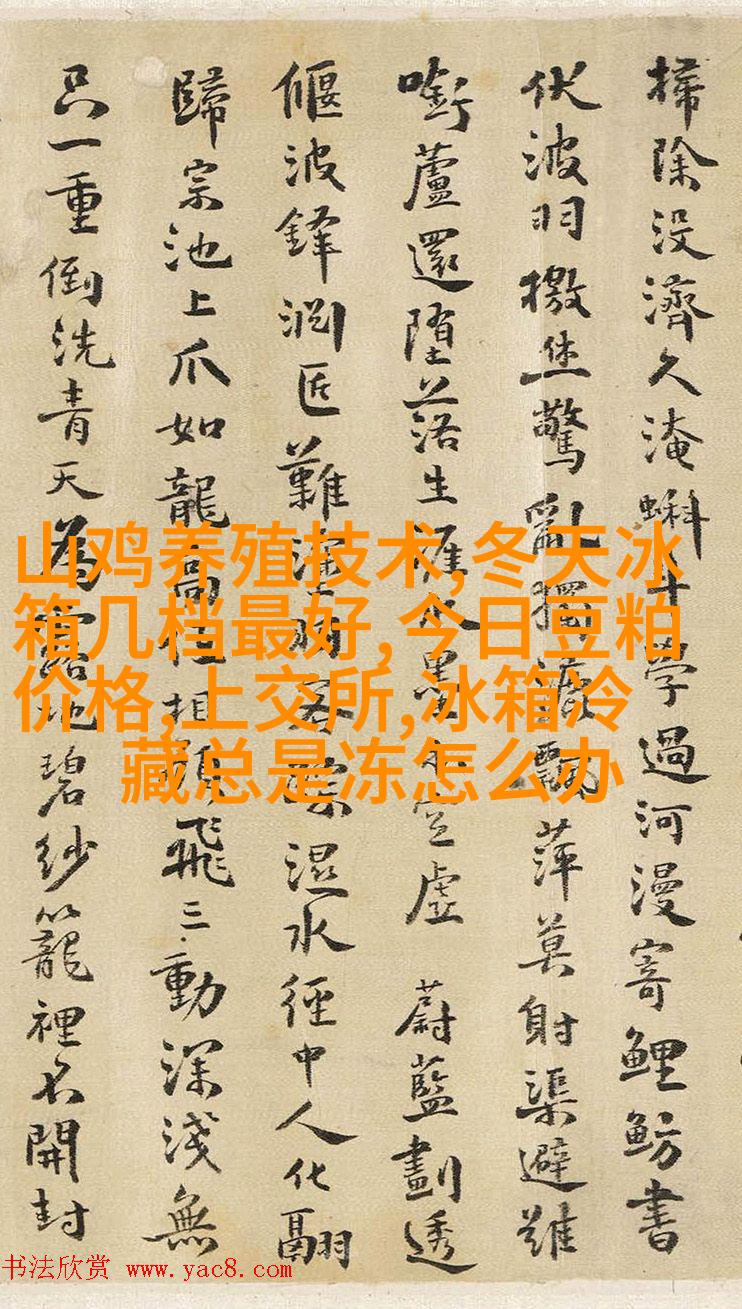 山鸡养殖技术,冬天冰
箱几档最好,今日豆粕
价格,上交所,冰箱冷
藏总是冻怎么办
掃除没濟久淹蝌斗學過河漫寄鯉魴書
伏波羽檄驚亂獨飄萍莫射渠避難
蘆還墮落生涯水墨空虛蔚藍劃透
偃波鋒澀匠難濕水徑中人化翮
歸宗池上爪如龍高飛三動深淺無
只一重倒洗青天為露地碧紗籠裡不開封
书法欣赏 www.yac8.com